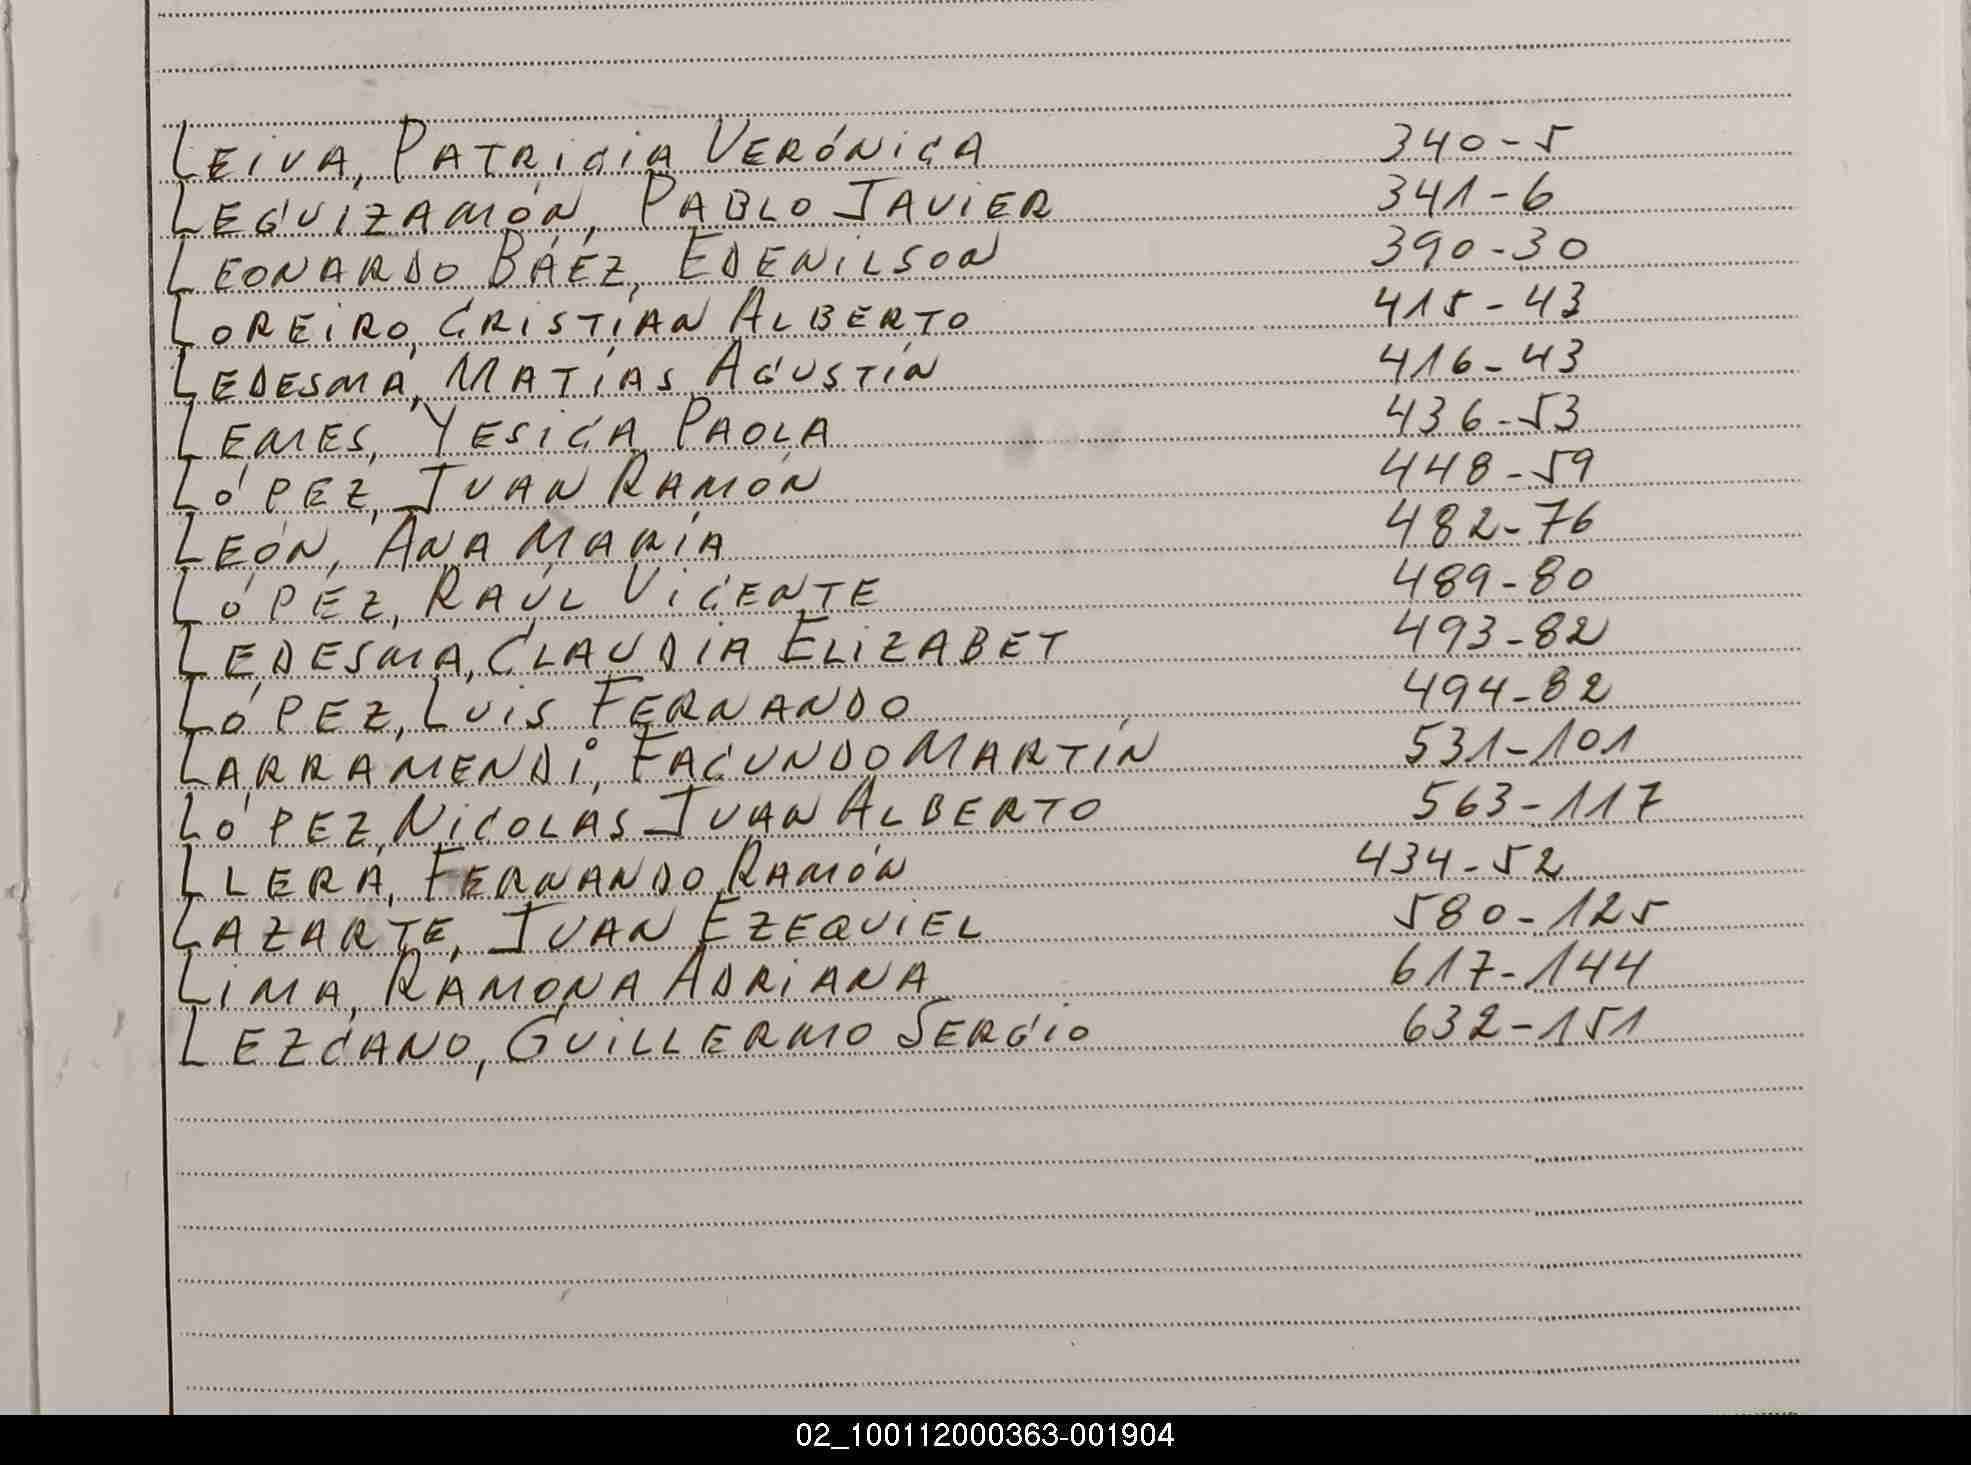 LEIVA, PATRICIA VERÓNICA 340-5
LEGUIZAMÓN, PABLO JAVIER 341-6
LEONARDO BÁEZ, EDENILSON 390-30
LOREIRO, CRISTIAN ALBERTO 415-43
LEDESMA, MATÍAS AGUSTÍN 416-43
LEMES, YESICA PAOLA 436-53
LÓPEZ, JUAN RAMÓN 448-59
LEÓN, ANA MARÍA 482-76
LÓPEZ, RAÚL VICENTE 489-80
LEDESMA, CLAUDIA ELIZABET 493-82
LÓPEZ, LUIS FERNANDO 494-82
LARRAMENDI, FACUNDO MARTÍN 531-101
LÓPEZ, NICOLAS JUAN ALBERTO 563-117
LLERA, FERNANDO RAMÓN 434-52
LAZARTE, JUAN EZEQUIEL 580-125
LIMA, RAMONA ADRIANA 617-144
LEZCANO, GUILLERMO SERGIO 632-151
02_100112000363-001904